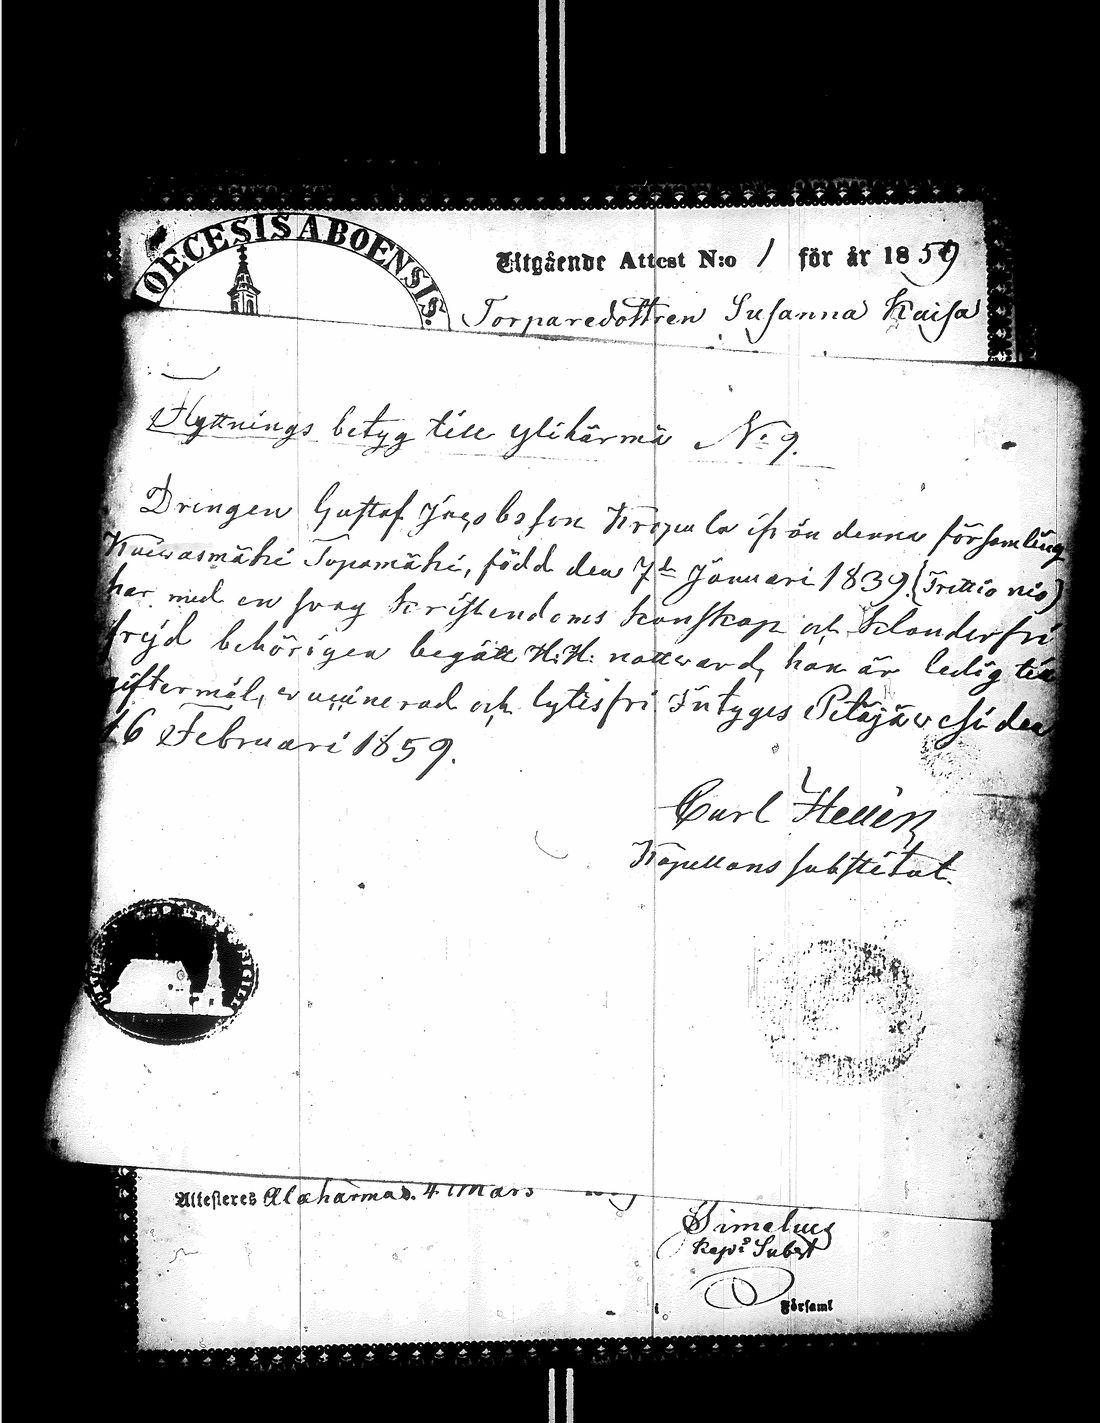 DIOECESIS ABOENSIS.
Utgående Attest N:o 1 för år 1859
Torparedottren Susanna Kaisa
Flyttnings betyg till Ylihärmä No 9.
Drengen Gustaf Jacobsson Kropula ifrån denna församling
Tupamäki, född den 7de Januari 1839 (Trettio nio)
har med en svag kristendoms kunskap och klanderfri
frejd behörigen begått H.H. nattvard, han är ledig till
giftermål, vaccinerad och lytesfri intyges Petäjävesi den
16 Februari 1859.
Carl Hellén
Kapellans substitut.
Attesteras Alahärma d. 4 Mars
Simelius
Kaps Subst
Församl